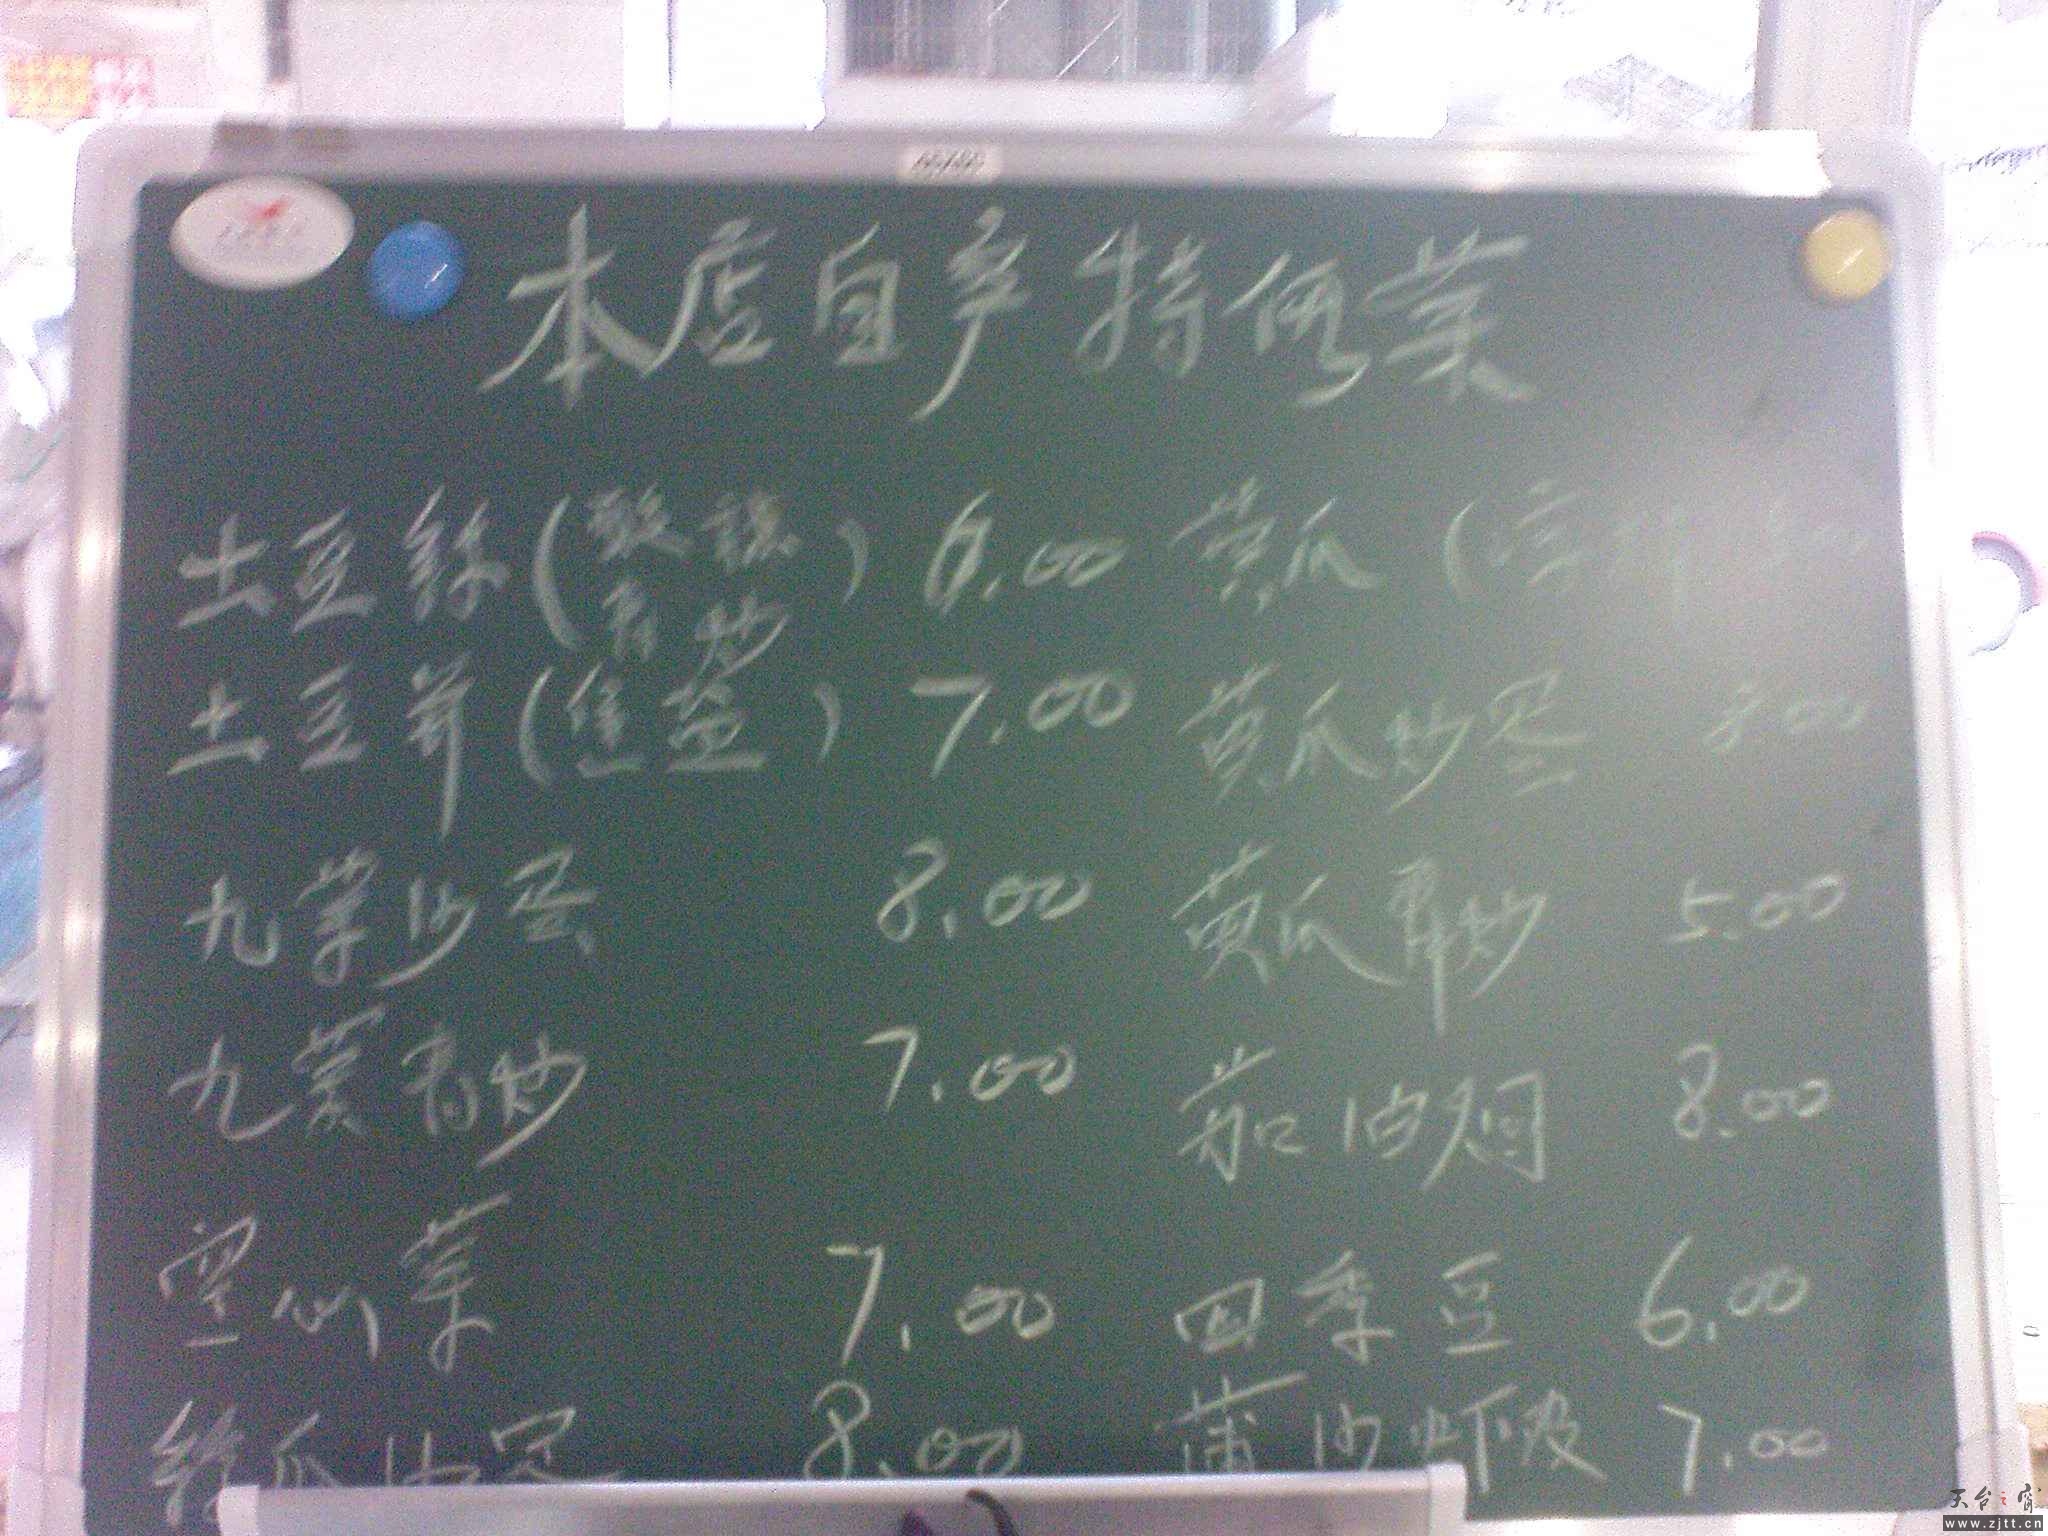 本店自产特优菜
土豆絲(酸辣 青炒) 6.00 黄瓜(
土豆片(焦盐) 7.00 黄瓜炒蛋 8.00
九菜炒蛋 8.00 黄瓜青炒 5.00
九菜青炒 7.00 茄油焖 8.00
空心菜 7.00 四季豆 6.00
絲瓜炒蛋 8.00 蒲炒虾皮 7.00
天台之窗
www.zjtt.cn